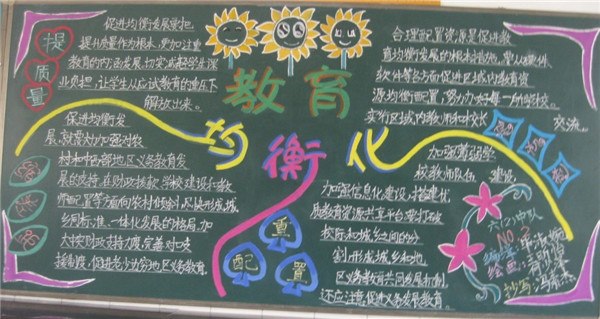 提质量
促进均衡发展要把
提升质量作为根本,更加注重
教育的内涵发展,切实减轻学生课
业负担,让学生从应试教育的重压下
解放出来。
教育
均衡化
促进均衡发
展,就需大力加强对农
村和中西部地区义务教育发
展的支持,在财政拨款,学校建设和教
师配置等方面向农村倾斜,尽快形成城
乡同标准、一体化发展的格局,加
大扶助政支持力度,完善对口支
援制度,促进老少边穷地区义务教育
重配置
合理配置资源是促进教
育均衡发展的根本措施,要从硬件
软件等各方面促进区域内教育资
源均衡配置,努力办好每一所学校,
实行区域内教师和校长
交流。
加强薄弱学
校教师队伍建设
加强信息化建设,搭建优
质教育资源共享平台,要打破
校际和城乡之间的分
割,形成城乡和地
区义务教育共同发展机制,
还应注意促进义务发展教育。
六(2)中队
NO.2
编
绘画:
抄写:冯